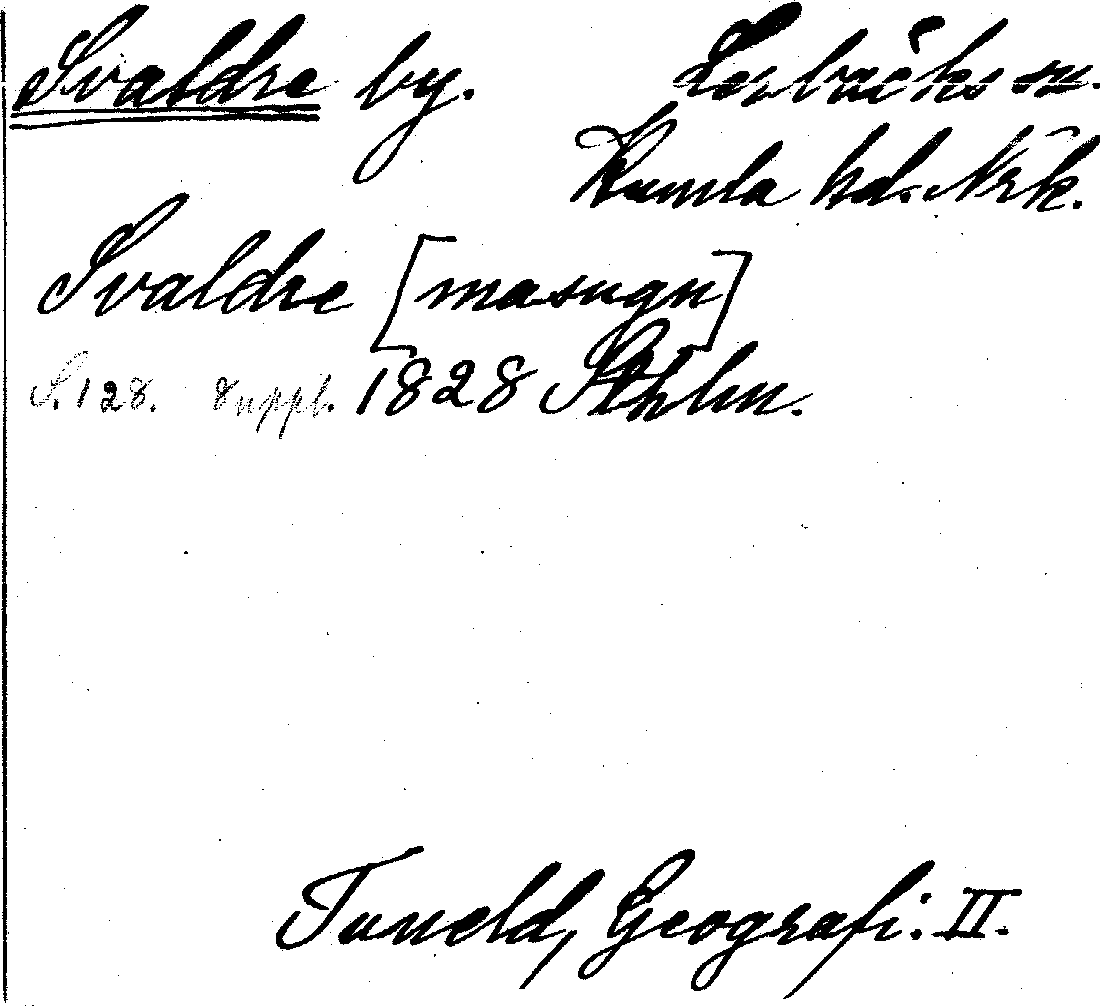 Svaldre by. Lerbäcks sn.
Kumla hd. Nrk.
Svaldre [masugn]
S. 128. Suppl. 1828 Sthlm.
Tuneld, Geografi: II.